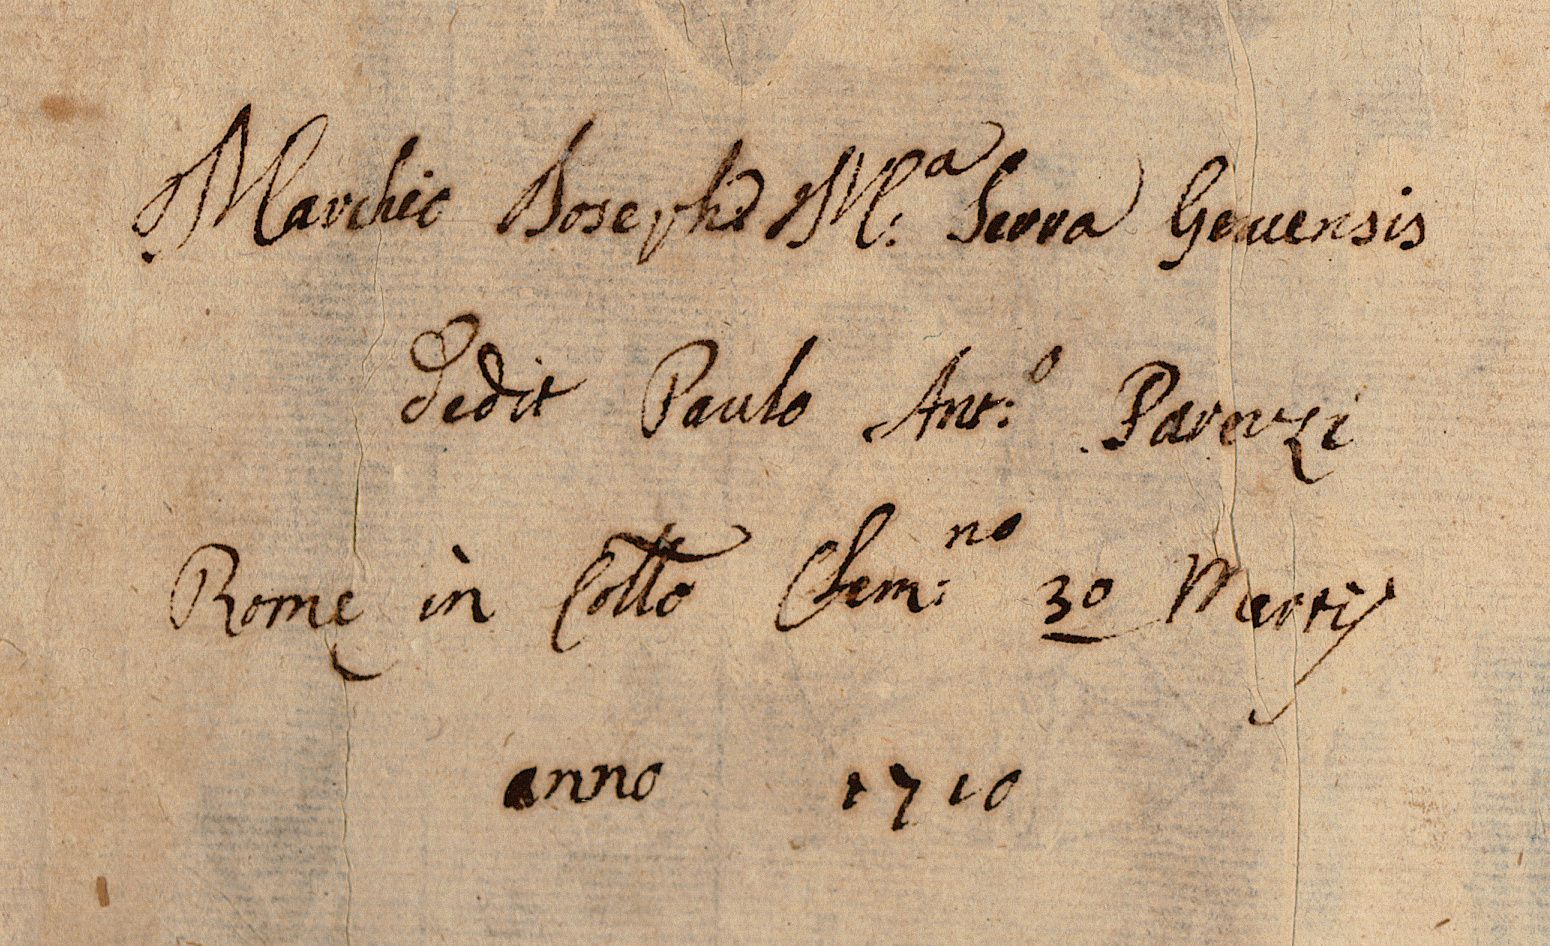 Marchio Joseph' M:ᵃ Serra Genuensis
dedit Paulo Ant:ᵒ Parenzi
Rome in Collo Clem:ⁿᵒ 30 Martij
anno 1710